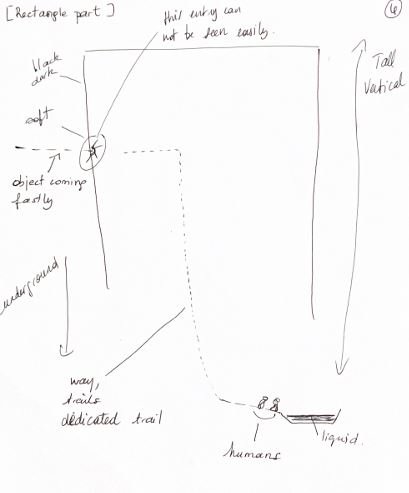 [Rectample part]
this entry can
not be seen easily.
6
black
dark
soft
Tall
Vertical
object coming
fastly
underground
way,
trails
dedicated trail
humans
liquid.